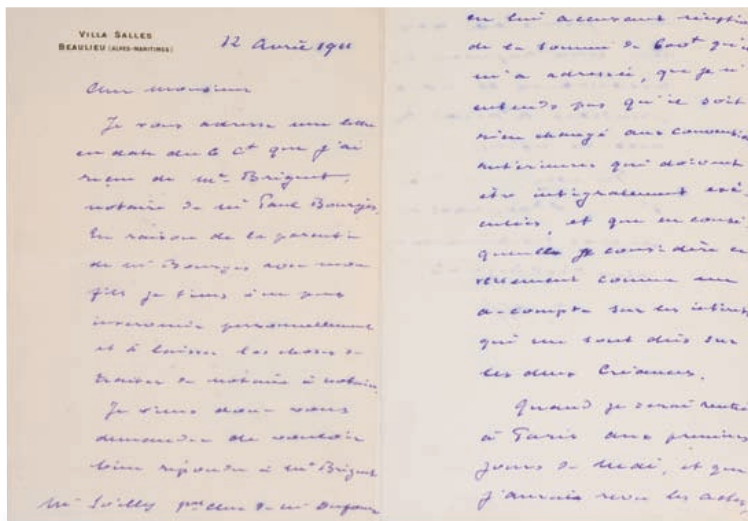 VILLA SALLES
BEAULIEU (ALPES-MARITIMES)
12 Avril 1911
Cher Monsieur
Je vous adresse une lettre
en date du 6 Ct que j'ai
reçue de Me Briguet,
notaire de Mr Paul Bourges.
En raison de la parenté
de Mr Bourges avec mon
fils je tiens à ne pas
intervenir personnellement
et à laisser les choses se
traiter de notaire à notaire.
Je viens donc vous
demander de vouloir
bien répondre à Me Briguet
de Mr Dufour
en lui accusant
de la somme de
m'a adressée, que je n'
entends pas qu'il soit
rien changé aux
antérieures qui doivent
être intégralement exé
cutées, et que en consé
quence je considère ce
versement comme un
a-compte sur les
qui me sont dûs sur
les deux Créances.
Quand je serai
à Paris aux premiers
jours de Mai, et que
j'aurais revu les actes,